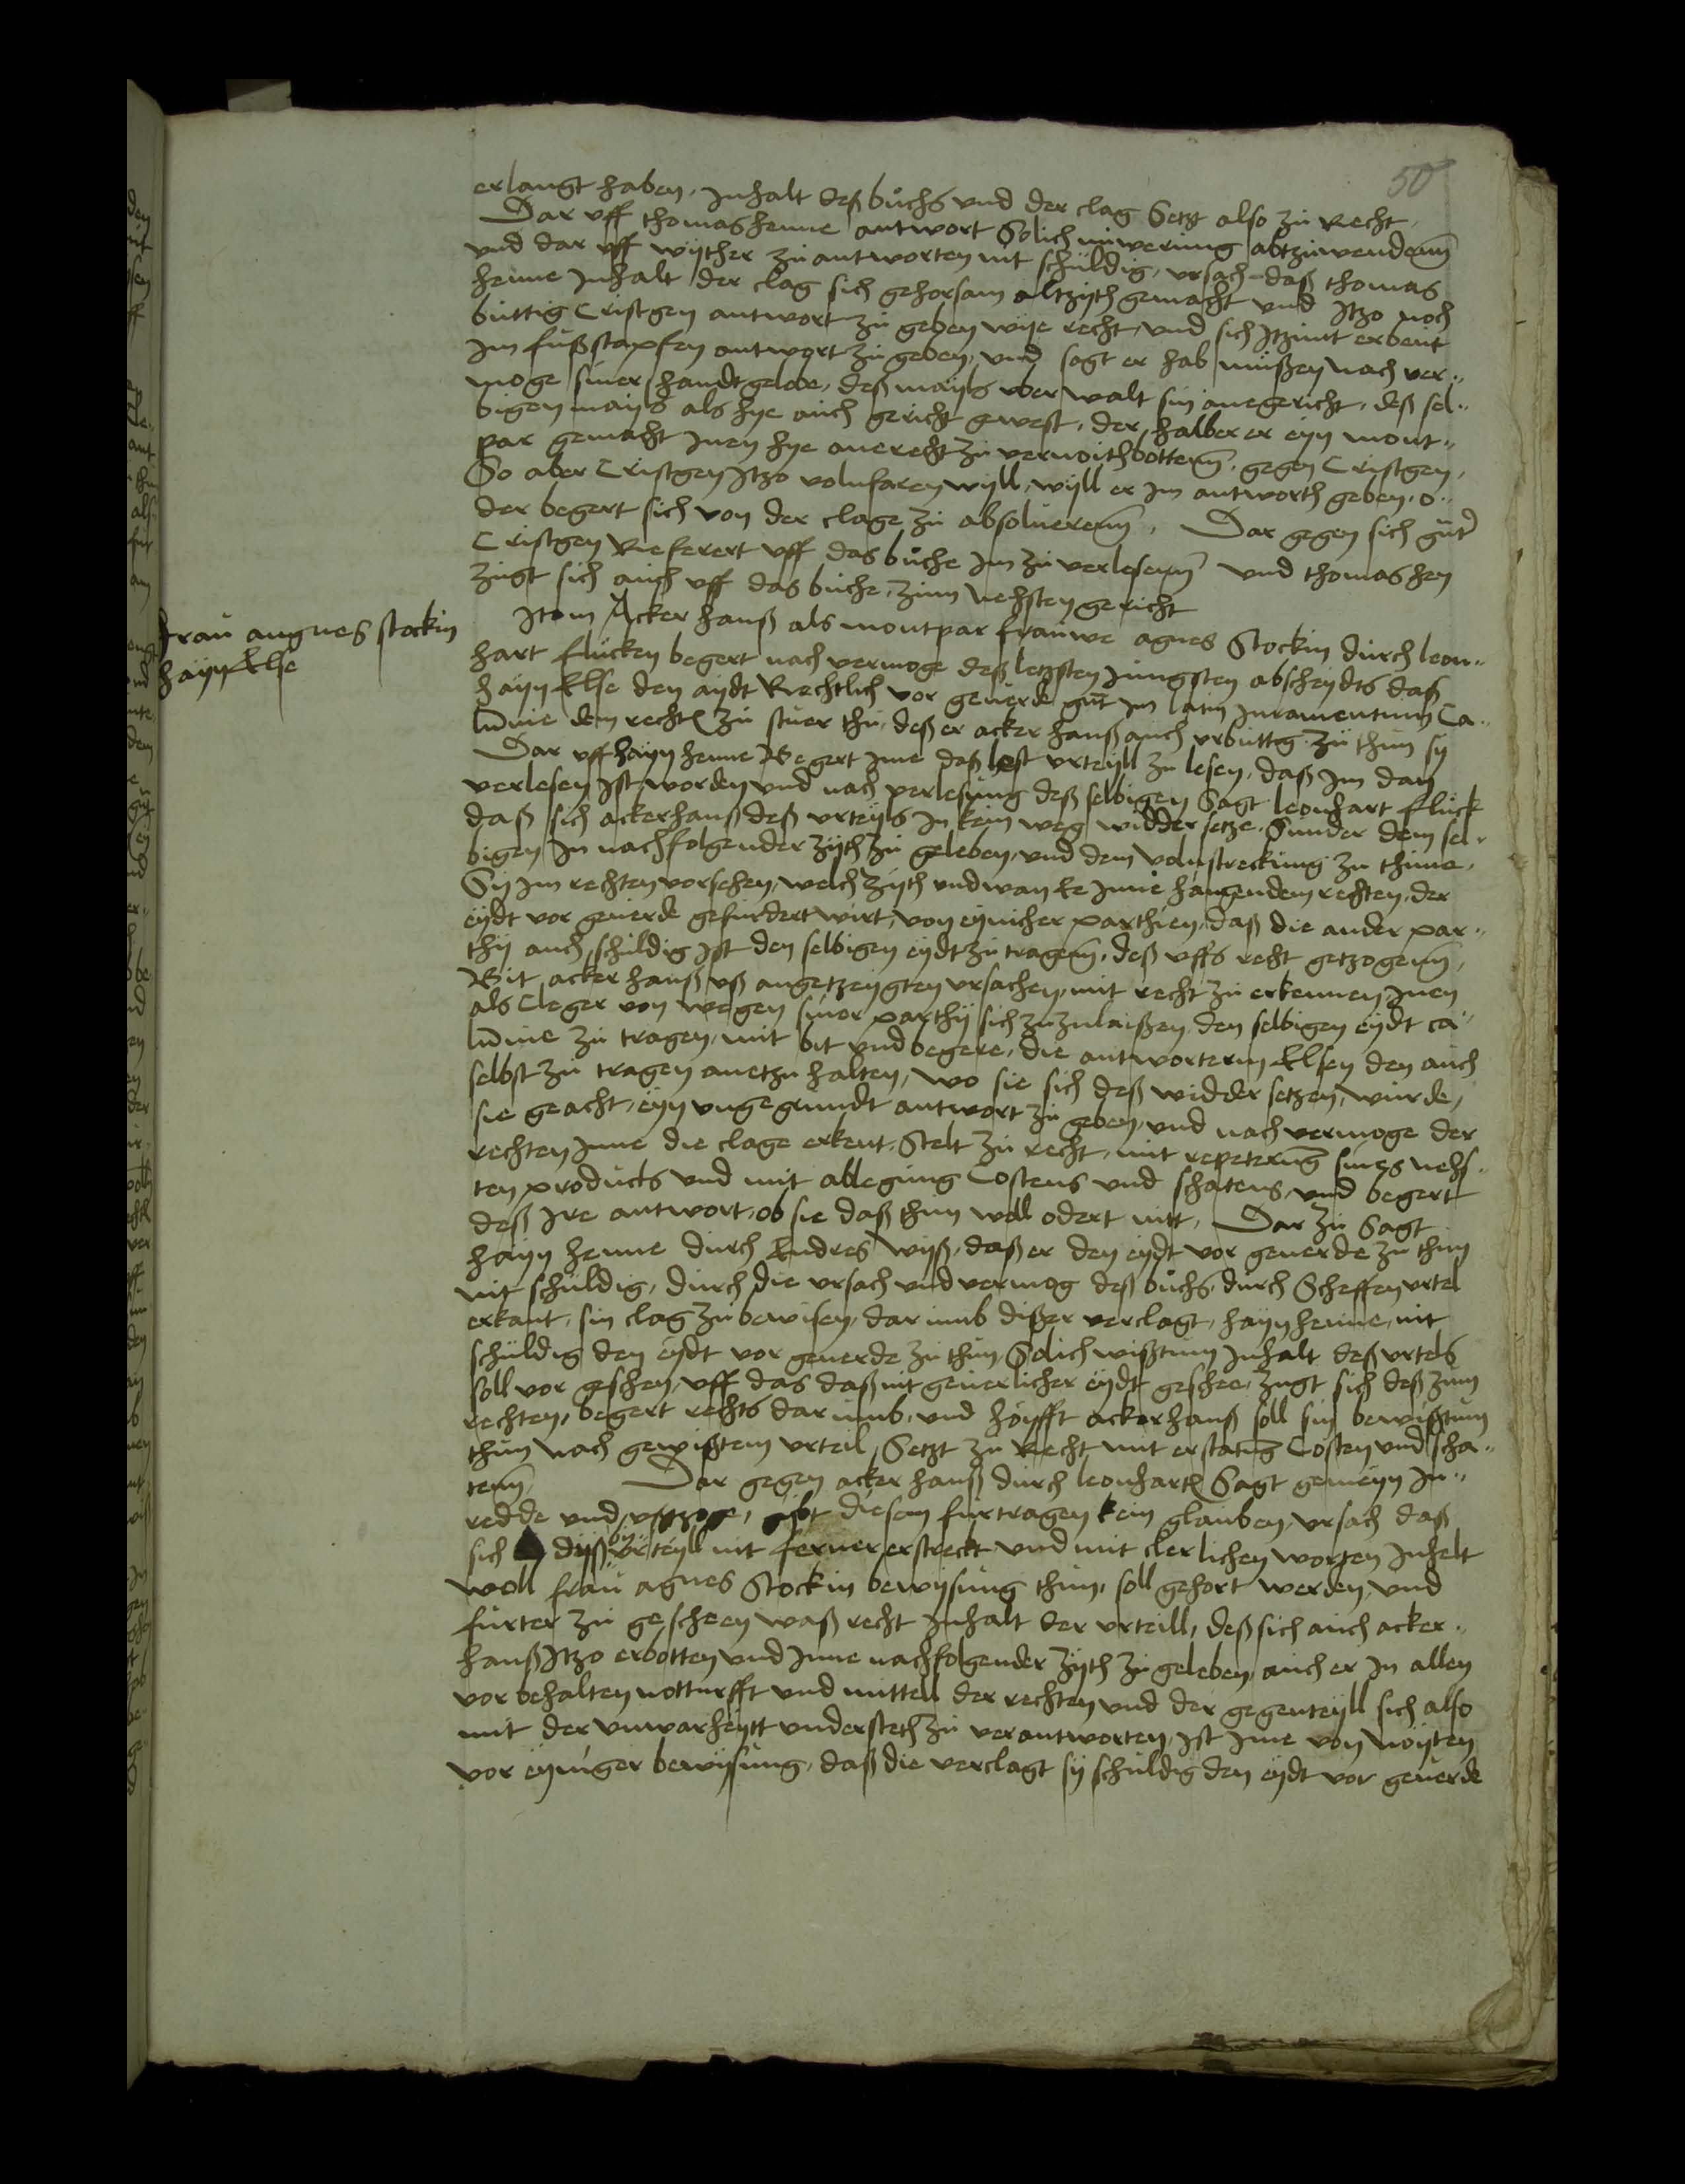 50
erlangt haben, Inhalt deß bůchs vnd der clag Setzt also zu Recht,
Dar vff thomas henne antwort Solich nuwerung abtzuwendenn
vnd dar vff wyther zu antworten nit schuldig, vrsach daß thomas
henne Inhalt der clag sich gehorsam altzyth gemacht vnd Itzo noch
buttig Cristgen antwort zu geben wye recht, vnd sich Itzunt erbeut
Im fußstapfen antwort zu geben, vnd sagt er hab mußen nach ver¬
moge siner handtgelobe, deß mayls vber walt sin anegericht, deß sel¬
bigen mayls als hye auch gericht gewest, der halber er eyn mont¬
par gemacht Inen hye anerecht zu vernoithbottenn, gegen Cristgen,
So aber Cristgen Itzo volnfaren wyll, wyll er Im antworth geben, o¬
der begert sich von der clage zu absoluerenn, Dar gegen sich gut
Cristgen Rieferert vff das bůche Im zu verlesenn vnd thomas hen
zugt sich auch vff das buche, zum nehsten gericht
Frau angnes stockin
hayn Else
Item Acker hanß als montpar frauwe agnes Stockin durch leon¬
hart flucken begert nach vermoge deß letzsten Jungsten abscheydts daß
hayn Else den aydt Rechtlich vor geuerde gnt Im latin Iuramentum Ca¬
lumnie dem rechten zu stuer thu, deß er acker hanß auch vrbuttig zu thun sy
Dar vff hayn henne Begert Ime daß lest vrteyll zu lesen, daß Im dan
verlesen Ist worden vnd nach verlesung deß selbigen Sagt leonhart fluck
daß sich ackerhanß deß vrteyls In kein weg widder setze, Sunder dem sel¬
bigen In nachfolgender zyth zu geleben, vnd dem volnstreckung zu thune,
Sy Im rechten vorsehen, welch zyth vnd wan Ee Inne hangendem rechten, der
eydt vor geuerde gefurdert wirt, von eynicher parthien, daß die ander par¬
thy auch schuldig Ist den selbigen eydt zu tragenn, deß vffs recht getzogenn,
Bit acker hanß vß angetzeygten vrsachen, mit recht zu erkennen, Inen
als Cleger von wegen siner parthy sich zuzulaißen, den selbigen eydt ca¬
lumnie zu tragen, mit bit vnd begere, die antworterin Elsen den auch
selbst zu tragen anetzuhalten, wo sie sich deß widder setzen, wurde,
sie geacht, eyn vngegrundt antwort zu geben, vnd nach vermoge der
rechten Inne die clage erkent, Stelt zu recht, mit repeterung sines nehs¬
ten products vnd mit ablegung Costens vnd schatens, vnd begert
deß Ire antwort, ob sie daß thun woll odert nitt, Dar zu Sagt
hayn henne durch Endres wyß, daß er den eydt vor geuerde zu thun
nit schuldig, durch die vrsach vnd vermog deß bůchs, durch Scheffen vrtel
erkant, sin clag zu bewisen, dar umb dißer verclagt, hayn henne, nit
schuldig den eydt vor geuerde zu thun Solich wißtum Inhalt deß vrtels
soll vor geschen, vff das daß nit geuerlicher eydt geschee, zugt sich deß zum
rechten, begert rechts dar umb, vnd hoyfft acker hanß soll sin bewißtum
thun nach gewißtem vrteil, Setzt zu Recht mit erstatung Costen vnd scha¬
tenn, Dar gegen acker hanß durch leonharten Sagt gemeyn In¬
redde vnd vßtzoge, gibt diesem furtragen kein glauben, vrsach daß
sich dyß vrteyll nit ferner erstreckt vnd mit clerlichen worten Inhelt
woll frau agnes Stockin bewysung thun, soll gehort werden, vnd
furter zu gescheen waß recht Inhalt der vrteill, deß sich auch acker¬
hanß Itzo erbotten vnd Inne nachfolgender zyth zu geleben, auch er In allen
vorbehalten notturfft vnd mittell der rechten vnd der gegenteyll sich also
mit der vnwarheytt vndersteth zu verantworten, Ist Ime von noyten
vor eyniger bewysung, daß die verclagt sy schuldig den eydt vor geuerde